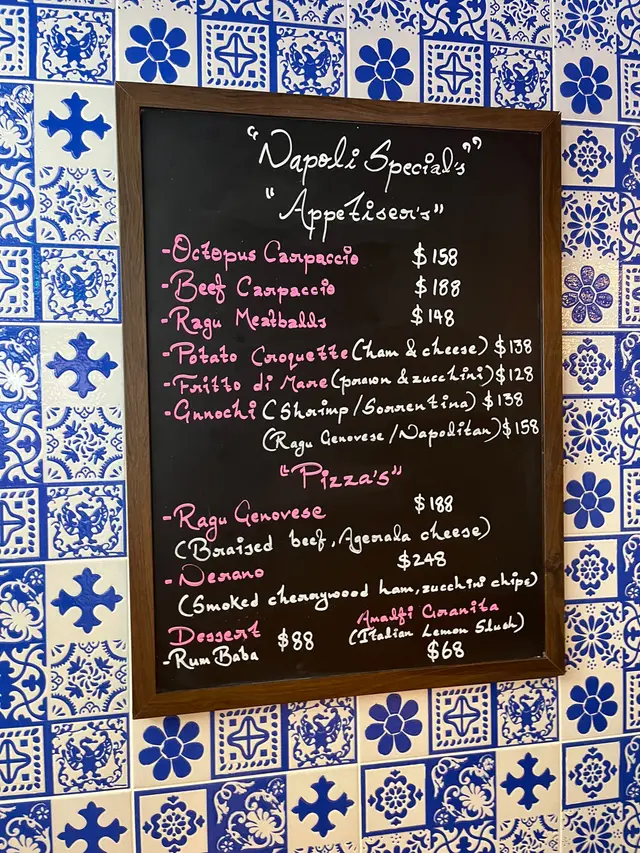 "Napoli Special's"
"Appetiser's"
-Octopus Carpaccio $158
-Beef Carpaccio $188
-Ragu Meatballs $148
-Potato Croquette (ham & cheese) $138
-Fritto di Mare (prawn & zucchini) $128
-Gnnochi (Shrimp/Sorrentina) $138
(Ragu Genovese/Napolitan) $158
"Pizza's"
-Ragu Genovese $188
(Braised beef, Agerala cheese)
-Nerano $248
(Smoked cherrywood ham, zucchini chips)
Dessert $88
-Rum Baba
Amalfi Granita
(Italian Lemon Slush)
$68